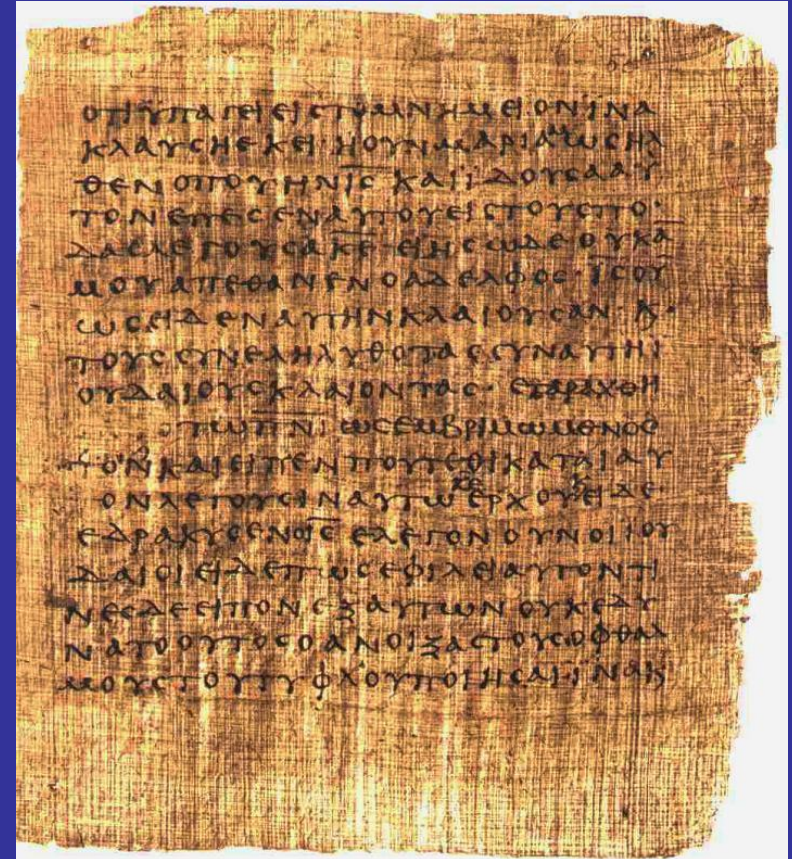 ΟΤΙ ΫΠΑΓΕΙ ΕΙΣ ΤΟ ΜΝΗΜΕΙΟΝ ΙΝΑ
ΚΛΑΥΣΗ ΕΚΕΙ· Η ΟΥΝ ΜΑΡΙΑΜ ΩΣ ΗΛ
ΘΕΝ ΟΠΟΥ ΗΝ Ι̅Σ̅ ΚΑΙ ΙΔΟΥΣΑ ΑΥ
ΤΟΝ ΕΠΕΣΕΝ ΑΥΤΟΥ ΕΙΣ ΤΟΥΣ ΠΟ·
ΔΑΣ ΛΕΓΟΥΣΑ Κ̅Ε̅· ΕΙ ΗΣ ΩΔΕ ΟΥΚ Α̅
ΜΟΥ ΑΠΕΘΑΝΕΝ Ο ΑΔΕΛΦΟΣ· Ι̅Σ̅ ΟΥ̅
ΩΣ ΕΙΔΕΝ ΑΥΤΗΝ ΚΛΑΙΟΥΣΑΝ· Κ·
ΤΟΥΣ ΣΥΝΕΛΗΛΥΘΟΤΑΣ ΣΥΝ ΑΥΤΗ Ι
ΟΥΔΑΙΟΥΣ ΚΛΑΙΟΝΤΑΣ· ΕΤΑΡΑΧΘΗ
ΤΩ Π̅Ν̅Ι̅ ΩΣ ΕΜΒΡΙΜΩΜΕΝΟΣ
ΚΑΙ ΕΙΠΕΝ ΠΟΥ ΤΕΘΙΚΑΤΑΙ ΑΥ
ΤΟΝ ΛΕΓΟΥΣΙΝ ΑΥΤΩ Κ̅Ε̅ ΕΡΧΟΥ ΕΙΔΕ·
ΕΔΑΚΥΣΕΝ Ο Ι̅Σ̅ ΕΛΕΓΟΝ ΟΥΝ ΟΙ ΙΟΥ
ΔΑΙΟΙ ΕΙΔΕ ΠΩΣ ΕΦΙΛΕΙ ΑΥΤΟΝ ΤΙ
ΝΕΣ ΔΕ ΕΙΠΟΝ ΕΞ ΑΥΤΩΝ ΟΥΚ ΕΔΥ
ΝΑΤΟ ΟΥΤΟΣ Ο ΑΝΟΙΞΑΣ ΤΟΥΣ ΟΦΘΑΛ
ΜΟΥΣ ΤΟΥ ΤΥΦΛΟΥ ΠΟΙΗΣΑΙ· ΙΝΑ Κ